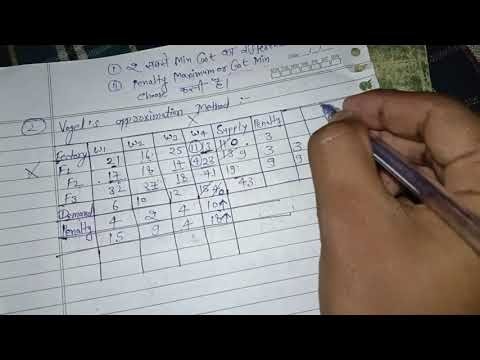 ① 2 सबसे Min Cost का
② Penalty Maximum or Cost Min
choose करनी है।
② Vogel's approximation Method :-
Factory W1 W2 W3 W4 Supply Penalty
F1 21 16 25 ⑪13 11 0 3
F2 17 18 14 ④23 13 9 3 3
F3 32 27 18 41 19 9 9
Demand 6 10 12 15 4 0 43
Penalty 4 2 4 10↑
15 9 4 18↑